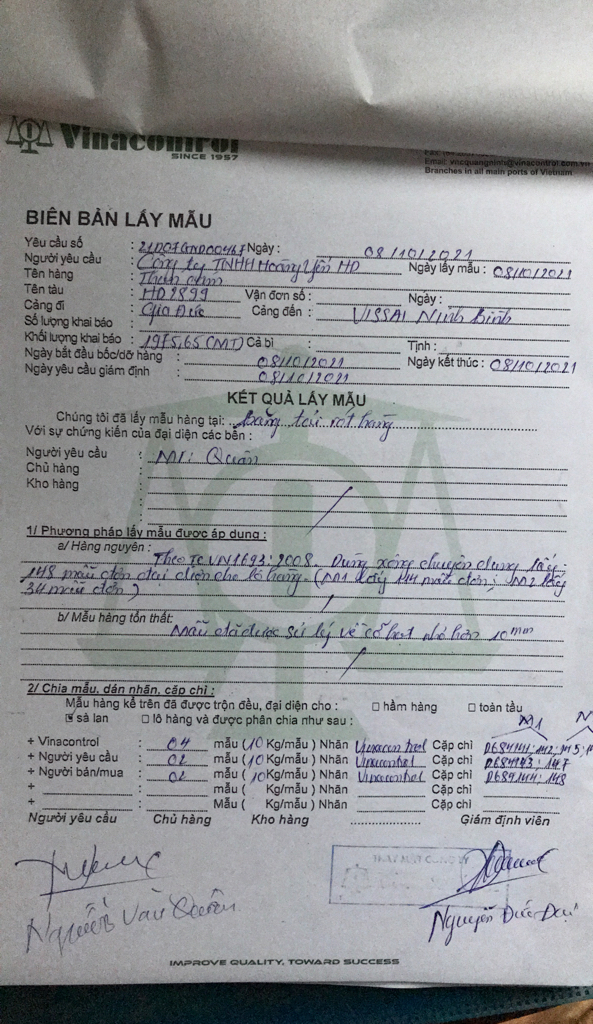 Vinacontrol
SINCE 1957
Email: vncquangninh@vinacontrol.com.vn
Branches in all main ports of Vietnam
BIÊN BẢN LẤY MẪU
Yêu cầu số : 21D07GND00467 Ngày : 08/10/2021
Người yêu cầu : Công ty TNHH Hoàng Yến HD Ngày lấy mẫu : 08/10/2021
Tên hàng : Than cám
Tên tàu : HD 2899 Vận đơn số : Ngày :
Cảng đi : Gia Đức Cảng đến : VISSAI Ninh Bình
Số lượng khai báo :
Khối lượng khai báo : 1975,65 (MT) Cả bì Tịnh :
Ngày bắt đầu bốc/dỡ hàng : 08/10/2021 Ngày kết thúc : 08/10/2021
Ngày yêu cầu giám định : 08/10/2021
KẾT QUẢ LẤY MẪU
Chúng tôi đã lấy mẫu hàng tại: băng tải rót hàng
Với sự chứng kiến của đại diện các bên :
Người yêu cầu : Mr: Quân
Chủ hàng :
Kho hàng :
1/ Phương pháp lấy mẫu được áp dụng :
a/ Hàng nguyên : Theo TCVN 1693:2008. Dùng xẻng chuyên dụng lấy
148 mẫu đơn đại diện cho lô hàng. (M1 lấy 114 mẫu đơn; M2 lấy
34 mẫu đơn)
b/ Mẫu hàng tổn thất:
Mẫu đã được sử lý về cỡ hạt nhỏ hơn 10mm
2/ Chia mẫu, dán nhãn, cặp chì :
Mẫu hàng kể trên đã được trộn đều, đại diện cho : □ hầm hàng □ toàn tầu
☑ sà lan □ lô hàng và được phân chia như sau : M1
+ Vinacontrol : 04 mẫu (10 Kg/mẫu ) Nhãn Vinacontrol Cặp chì D684141; 142;
+ Người yêu cầu : 02 mẫu (10 Kg/mẫu ) Nhãn Vinacontrol Cặp chì D684143; 147
+ Người bán/mua : 02 mẫu (10 Kg/mẫu ) Nhãn Vinacontrol Cặp chì D684144; 148
+ : mẫu ( Kg/mẫu ) Nhãn Cặp chì
+ : Mẫu ( Kg/mẫu ) Nhãn Cặp chì
Người yêu cầu Chủ hàng Kho hàng Giám định viên
Nguyễn Văn Quân
Nguyễn Đức Đại
IMPROVE QUALITY, TOWARD SUCCESS